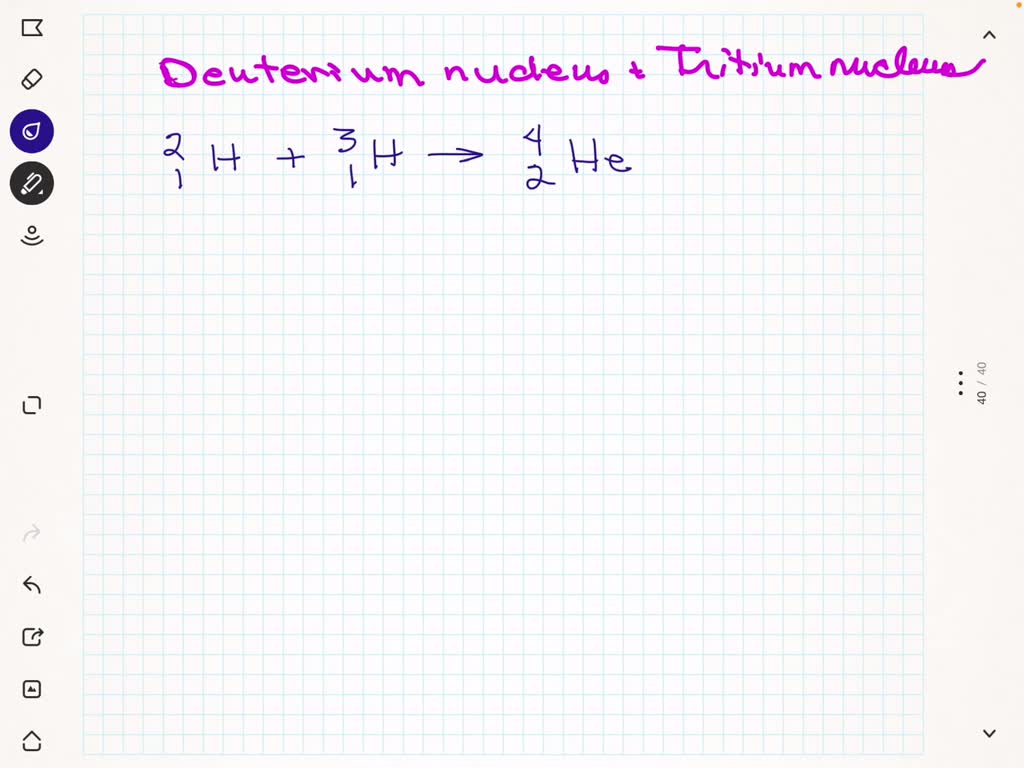 Deuterium nucleus + Tritium nucleus
²₁H + ³₁H → ⁴₂He
40 / 40